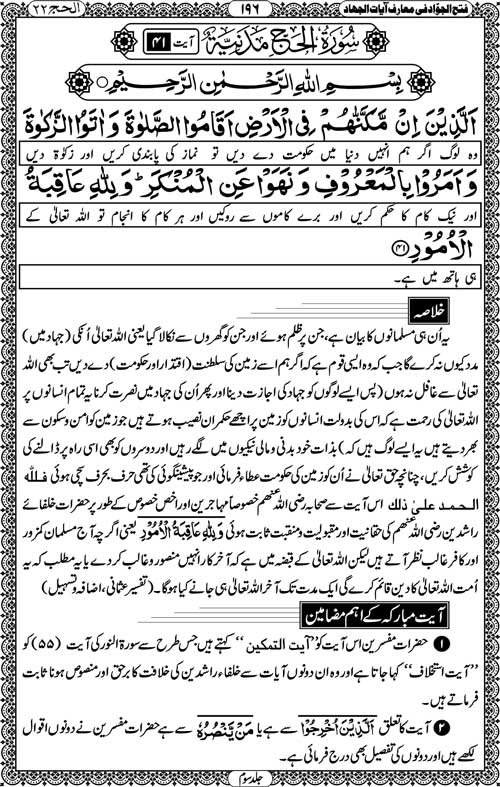 فتح الجوّاد فی معارف آیات الجهاد
۱۹۶
الحج ۲۲
سُورَةُ الْحَجِّ مَدَنِيَّةٌ
آیت ۴۱
بِسْمِ اللهِ الرَّحْمٰنِ الرَّحِيْمِ
اَلَّذِيْنَ اِنْ مَّكَّنّٰهُمْ فِى الْاَرْضِ اَقَامُوا الصَّلٰوةَ وَاٰتَوُا الزَّكٰوةَ
وہ لوگ اگر ہم انہیں دنیا میں حکومت دے دیں تو نماز کی پابندی کریں اور زکوٰة دیں
وَاَمَرُوْا بِالْمَعْرُوْفِ وَنَهَوْا عَنِ الْمُنْكَرِ ؕ وَلِلّٰهِ عَاقِبَةُ
اور نیک کام کا حکم کریں اور برے کاموں سے روکیں اور ہر کام کا انجام تو اللہ تعالیٰ کے
الْاُمُوْرِ ﴿۴۱﴾
ہی ہاتھ میں ہے۔
خلاصہ
یہ اُن ہی مسلمانوں کا بیان ہے، جن پر ظلم ہوئے اور جن کو گھروں سے نکالا گیا یعنی اللہ تعالیٰ اُنکی (جہاد میں)
مدد کیوں نہ کرے گا جب کہ وہ ایسی قوم ہے کہ اگر ہم اسے زمین کی سلطنت (اقتدار اور حکومت) دے دیں تب بھی اللہ
تعالیٰ سے غافل نہ ہوں (پس ایسے لوگوں کو جہاد کی اجازت دینا اور پھر اُن کی جہاد میں نصرت کرنا یہ تمام انسانوں پر
اللہ تعالیٰ کی رحمت ہے کہ اس کی بدولت انسانوں کو زمین پر اچھے حکمران نصیب ہوتے ہیں جو زمین کو امن و سکون سے
بھر دیتے ہیں یہ ایسے لوگ ہیں کہ) بذات خود بدنی و مالی نیکیوں میں لگے رہیں اور دوسروں کو بھی اسی راہ پر ڈالنے کی
کوشش کریں، چنانچہ حق تعالیٰ نے اُن کو زمین کی حکومت عطاء فرمائی اور جو پیشینگوئی کی تھی حرف بحرف سچی ہوئی فللّٰہ
الحمد علیٰ ذلك اس آیت سے صحابہ رضی اللہ عنھم خصوصاً مہاجرین اور اخص خصوص کے طور پر حضرات خلفائے
راشدین رضی اللہ عنھم کی حقانیت اور مقبولیت و منقبت ثابت ہوئی وَلِلّٰهِ عَاقِبَةُ الْاُمُوْرِ یعنی اگرچہ آج مسلمان کمزور
اور کافر غالب نظر آتے ہیں لیکن اللہ تعالیٰ کے قبضہ میں ہے کہ آخر کار انہیں منصور و غالب کر دے یا یہ مطلب کہ یہ
اُمت اللہ تعالیٰ کا دین قائم کرے گی ایک مدت تک آخر اللہ ہی جانے کیا ہوگا۔ (تفسیر عثمانی، اضافہ و تسہیل)
آیت مبارکہ کے اہم مضامین
۱ حضرات مفسرین اس آیت کو ’’آیت التمکین‘‘ کہتے ہیں جس طرح سے سورۃ النور کی آیت (۵۵) کو
’’آیت استخلاف‘‘ کہا جاتا ہے اور وہ ان دونوں آیات سے خلفاء راشدین کی خلافت کا برحق اور منصوص ہونا ثابت
فرماتے ہیں۔
۲ آیت کا تعلق اَلَّذِيْنَ اُخْرِجُوْا سے ہے یا مَنْ يَّنْصُرُهٗ سے ہے حضرات مفسرین نے دونوں اقوال
لکھے ہیں اور دونوں کی تفصیل بھی درج فرمائی ہے۔
جلد سوم